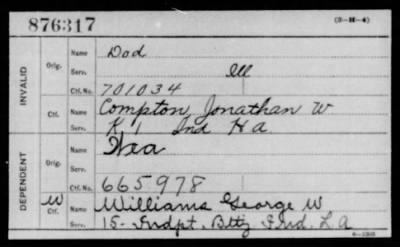 876317
(3—H—4)
INVALID
Orig.
Name Dod
Serv. Ill
Ctf. No. 701034
Ctf.
Name Compton, Jonathan W
Serv. K 1 Ind H a
DEPENDENT
Orig.
Name
Serv.
Ctf. No. 665978
W
Ctf.
Name Williams George W
Serv. 15- Indpt. Btty Ind. L a